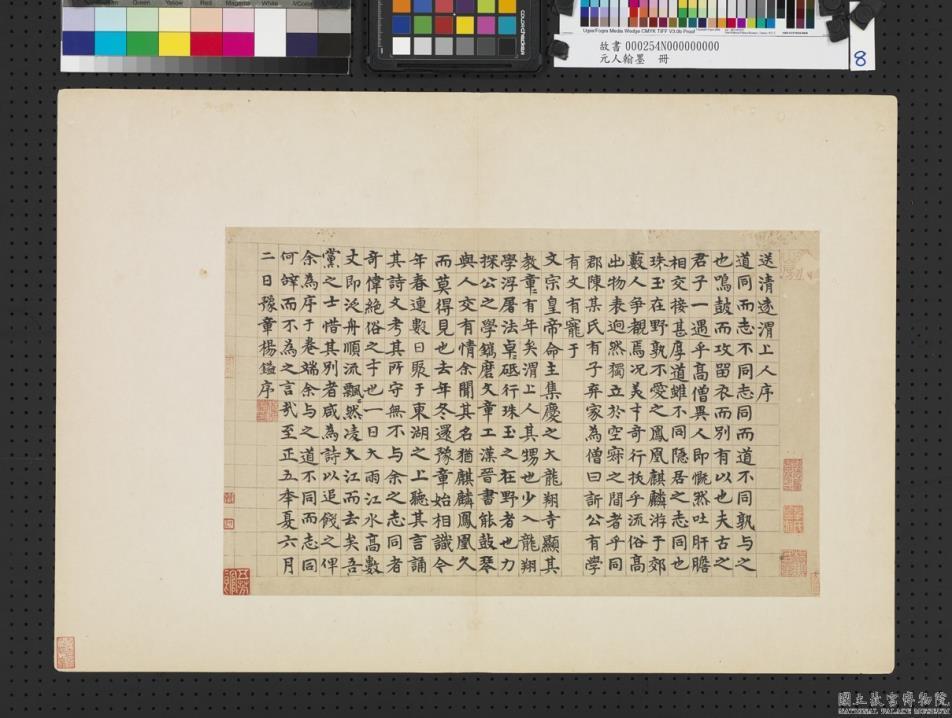 Green
Yellow
Red
Magenta
White
colorchecker
Ugra/Fogra Media Wedge CMYK TIFF V3.0b Proof
故書 000254N000000000
元人翰墨 冊
8
送清遠渭上人序
道同而志不同志同而道不同孰與之
也鳴鼓而攻留衣而別有以也夫古之
君子一遇乎高僧異人即慨然吐肝膽
相交接甚厚道雖不同隱居之志同也
珠玉在野孰不愛之鳳凰麒麟游于郊
藪人爭觀焉况美才奇行拔乎流俗高
出物表迥然獨立於空寂之間者乎同
郡陳某氏有子弃家為僧曰訢公有學
有文有寵于
文宗皇帝命主集慶之大龍翔寺顯其
教章有年矣渭上人其甥也少入龍翔
學浮屠法卓砥行珠玉之在野者也力
探公之學鐫磨文章工漢晉書能鼓琴
與人交有情余聞其名猶麒麟鳳凰久
而莫得見也去年冬還豫章始相識今
年春連數日聚于東湖之上聽其言誦
其詩文考其所守無不與余之志同者
奇偉絕俗之才也一日大雨江水高數
丈即泛舟順流飄然凌大江而去矣吾
黨之士惜其別者咸為詩以追餞之俾
余為序于卷端余與之道不同而志同
何辭而不為之言哉至正五年夏六月
二日豫章楊鎰序
國立故宮博物院
NATIONAL PALACE MUSEUM